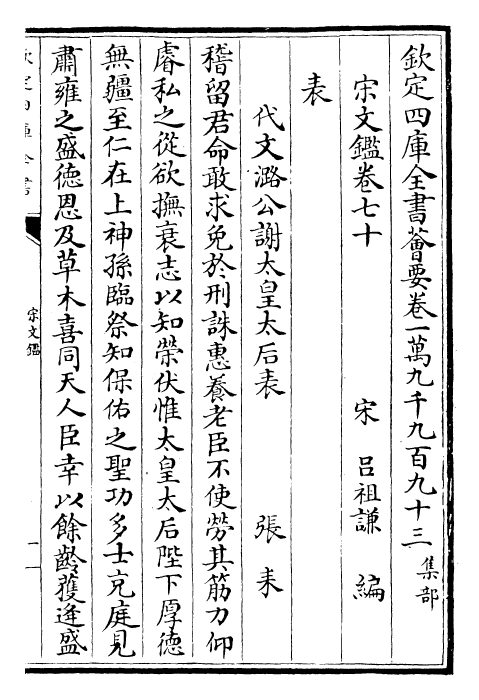 欽定四庫全書薈要卷一萬九千九百九十三 集部
宋文鑑卷七十
宋 呂祖謙 編
表
代文潞公謝太皇太后表 張耒
稽留君命敢求免於刑誅惠養老臣不使勞其筋力仰
睿私之從欲撫衰志以知榮伏惟太皇太后陛下厚德
無疆至仁在上神孫臨祭知保佑之聖功多士充庭見
肅雍之盛德恩及草木喜同天人臣幸以餘齡獲逢盛
欽定四庫全書
宋文鑑
一